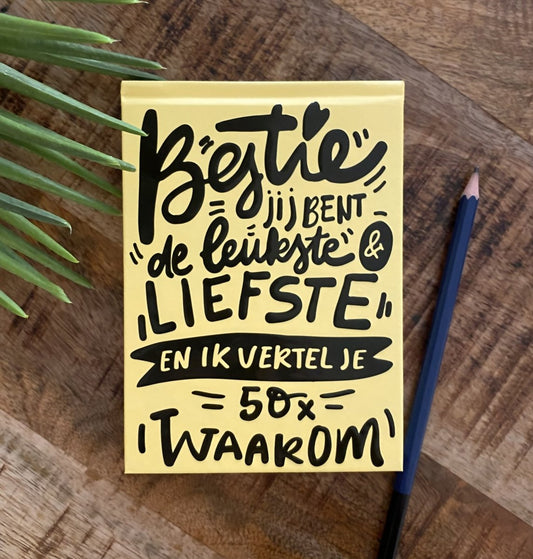 Bestie
jij BENT
de leukste &
LIEFSTE
EN IK VERTEL JE
50x
WAAROM